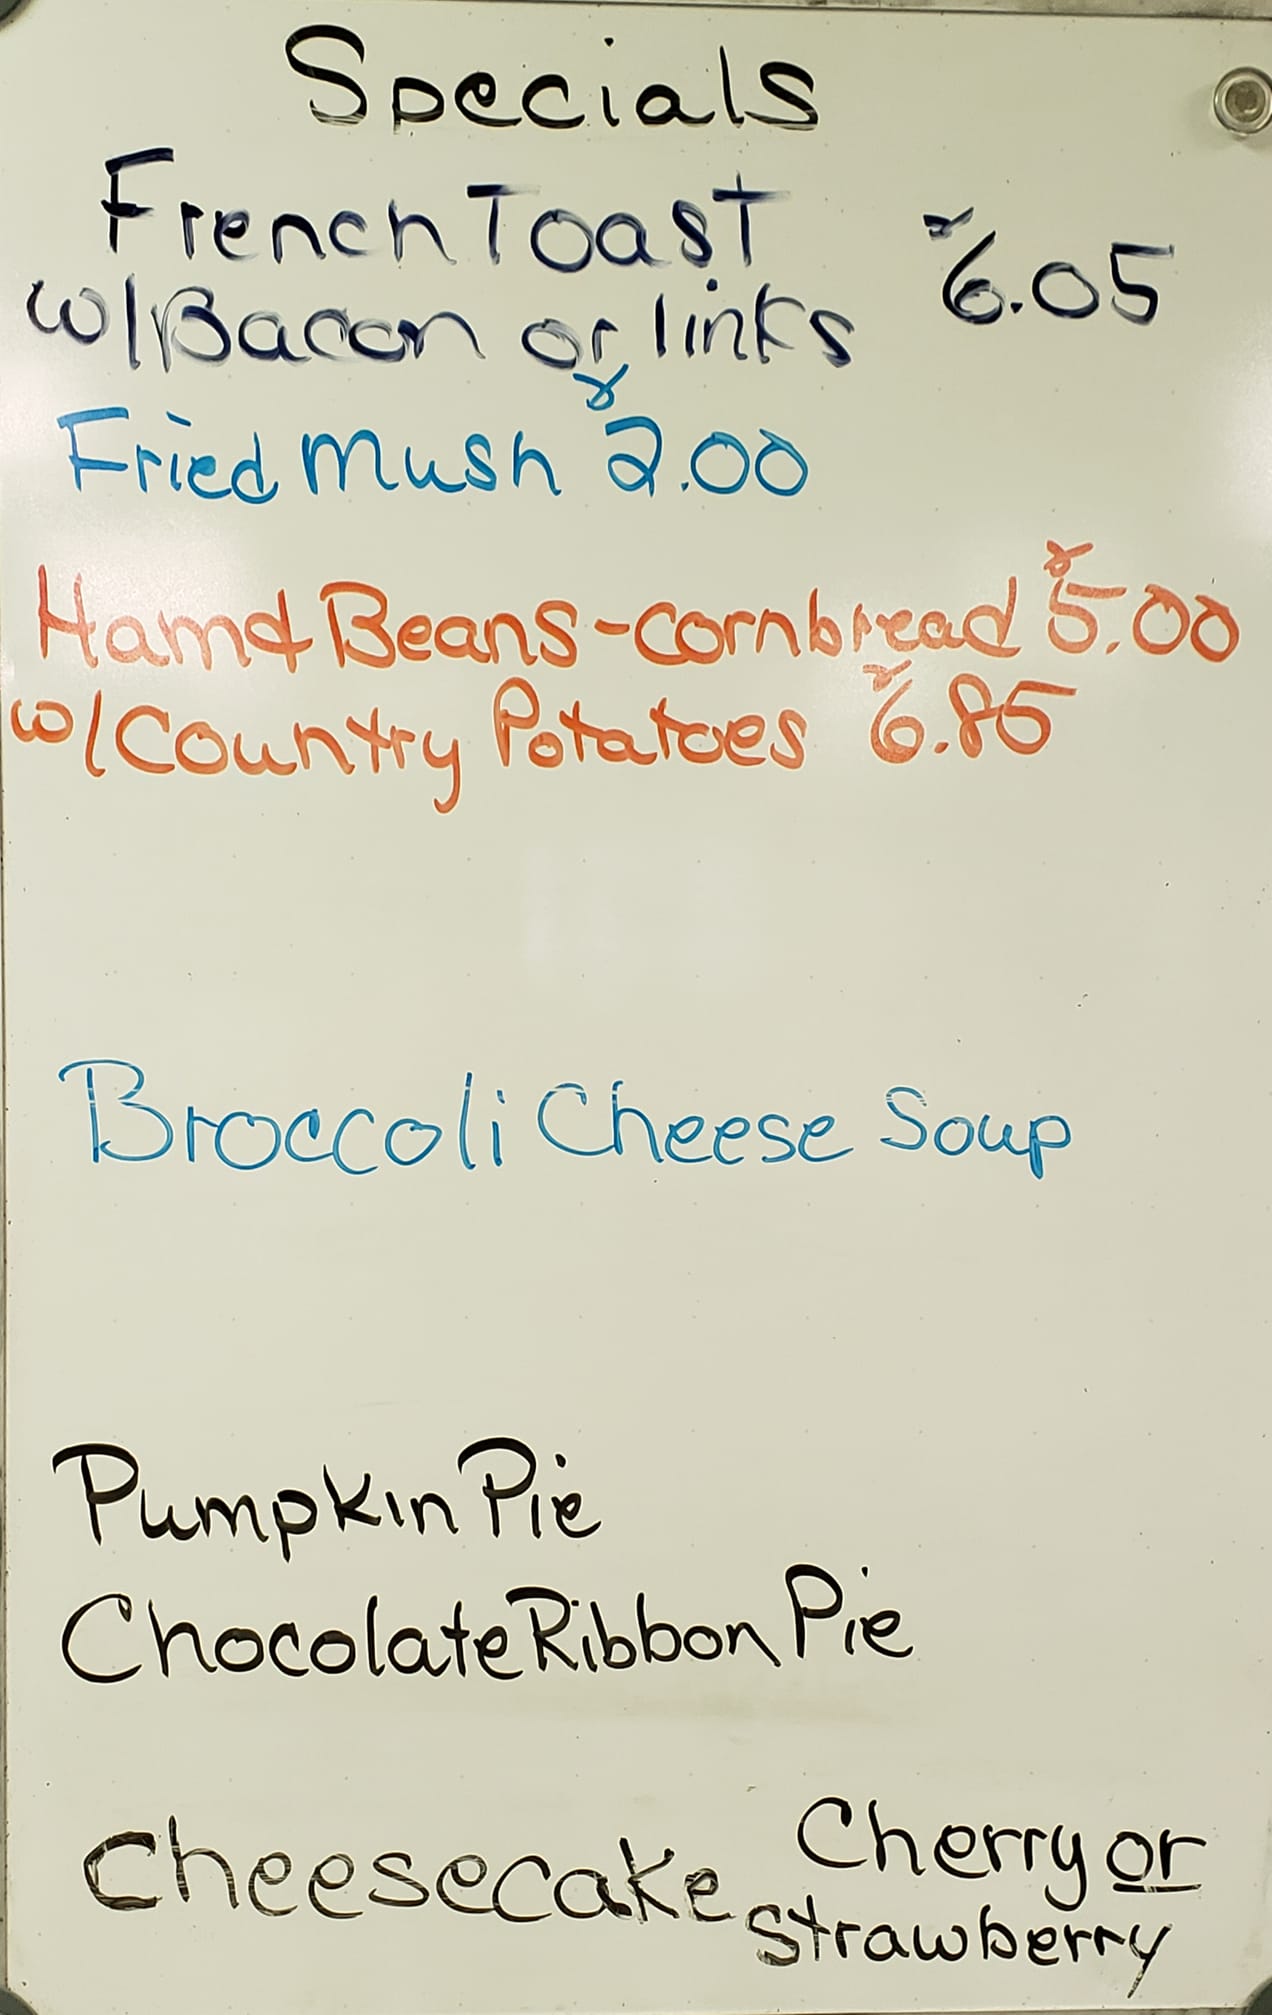 Specials
French Toast
w/Bacon or links 6.05
Fried Mush 2.00
Ham & Beans - cornbread 5.00
w/Country Potatoes 6.85
Broccoli Cheese Soup
Pumpkin Pie
Chocolate Ribbon Pie
Cheesecake Cherry or
Strawberry